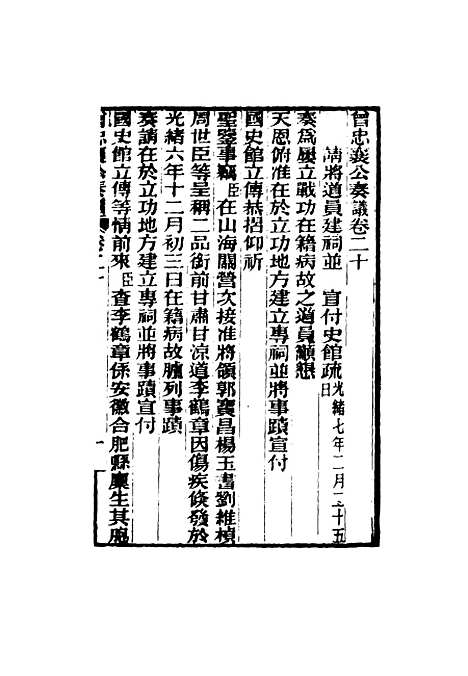 曾忠襄公奏議卷二十
請將道員建祠並 宣付史館疏光緒七年二月二十五日
奏爲屢立戰功在籍病故之道員籲懇
天恩俯准在於立功地方建立專祠並將事蹟宣付
國史館立傳恭摺仰祈
聖鑒事竊臣在山海關營次接准將領郭寶昌楊玉書劉維楨
周世臣等呈稱二品銜前甘肅甘涼道李鶴章因傷疾倏發於
光緒六年十二月初三日在籍病故臚列事蹟
奏請在於立功地方建立專祠並將事蹟宣付
國史館立傳等情前來臣查李鶴章係安徽合肥縣廩生其胞
曾忠襄公奏議 卷二十 一